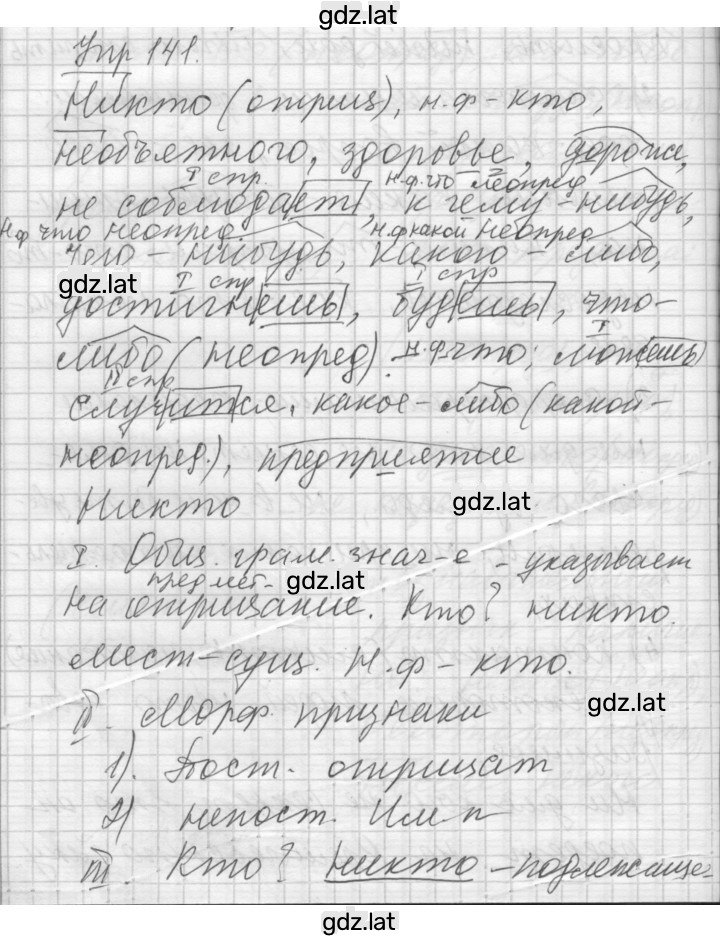 gdz.lat
Упр 141.
Никто (отриц), н.ф - кто,
необъятного, здоровье, дороже,
I спр. н.ф. что неопред
не соблюдает, к чему-нибудь,
Н.ф что неопред. н.ф какой неопред
чего-нибудь, какого-либо,
gdz.lat I спр I спр
достигнешь, будешь, что-
либо (неопред) н.ф что, можешь
I
II спр
случится, какое-либо (какой-
неопред.), предприятие
Никто
gdz.lat
I. Общ. грам. знач-е - указывает
предмет. gdz.lat
на отрицание. Кто? никто.
Мест-сущ. Н.ф - кто.
gdz.lat
II. Морф. признаки
1). Пост. отрицат
2) непост. Им.п
III. Кто? Никто - подлежаще
gdz.lat